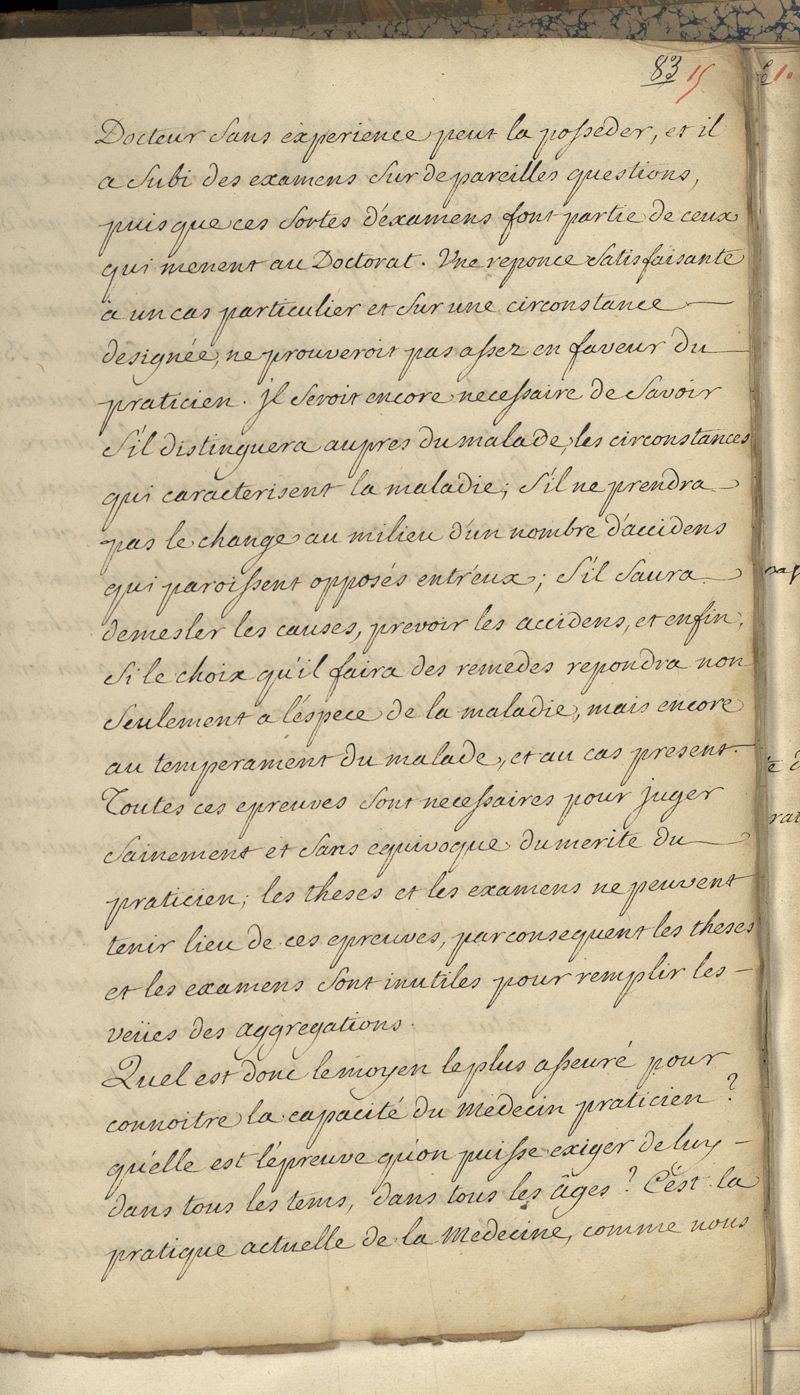 83 15
Docteur sans experience peut la posseder, et il
a subi des examens sur de pareilles questions,
puis que ces sortes d'éxamens font partie de ceux
qui menent au Doctorat. Une reponce satisfaisante
à un cas particulier et sur une circonstance
designée, ne prouveroit pas assez en faveur du
praticien. Jl seroit encore necessaire de savoir
s'il distinguera aupres du malade, les circonstances
qui caracterisent la maladie; s'il ne prendra
pas le change au milieu d'un nombre d'accidens
qui paroissent opposés entr'eux; s'il saura
demesler les causes, prevoir les accidens, et enfin,
si le choix qu'il faira des remedes repondra non
seulement a l'éspece de la maladie, mais encore
au temperament du malade, et au cas present.
Toutes ces epreuves sont necessaires pour juger
sainement et sans equivoque du merite du
praticien; les theses et les examens ne peuvent
tenir lieu de ces epreuves, par consequent les theses
et les examens sont inutiles pour remplir les
veües des aggregations.
Quel est donc le moyen le plus asseuré pour
connoitre la capacité du Medecin praticien?
qu'elle est l'épreuve qu'on puisse exiger de luy
dans tous les tems, dans tous les âges? C'ést la
pratique actuelle de la Medecine, comme nous